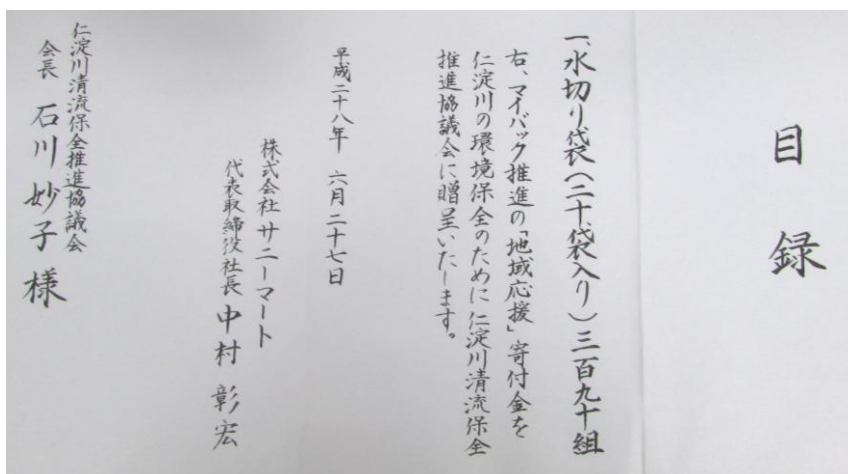 目録
一、水切り袋(二十袋入り)三百九十組
右、マイバック推進の「地域応援」寄付金を
仁淀川の環境保全のために仁淀川清流保全
推進協議会に贈呈いたします。
平成二十八年 六月二十七日
株式会社サニーマート
代表取締役社長 中村彰宏
仁淀川清流保全推進協議会
会長 石川妙子様